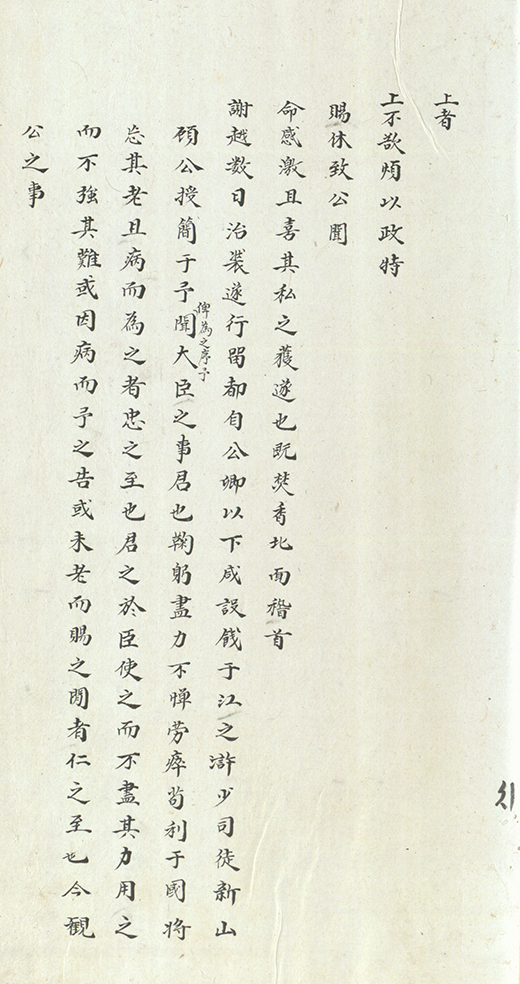 上者
上不欲煩以政特
賜休致公聞
命感激且喜其私之獲遂也既焚香北面稽首
謝越数日治裝遂行留都自公卿以下咸設餞于江之滸少司徒新山
顧公授簡于予俾為之序予聞大臣之事君也鞠躬盡力不憚勞瘁苟利于國將
忘其老且病而為之者忠之至也君之於臣使之而不盡其力用之
而不強其難或因病而予之告或未老而賜之閒者仁之至也今觀
公之事